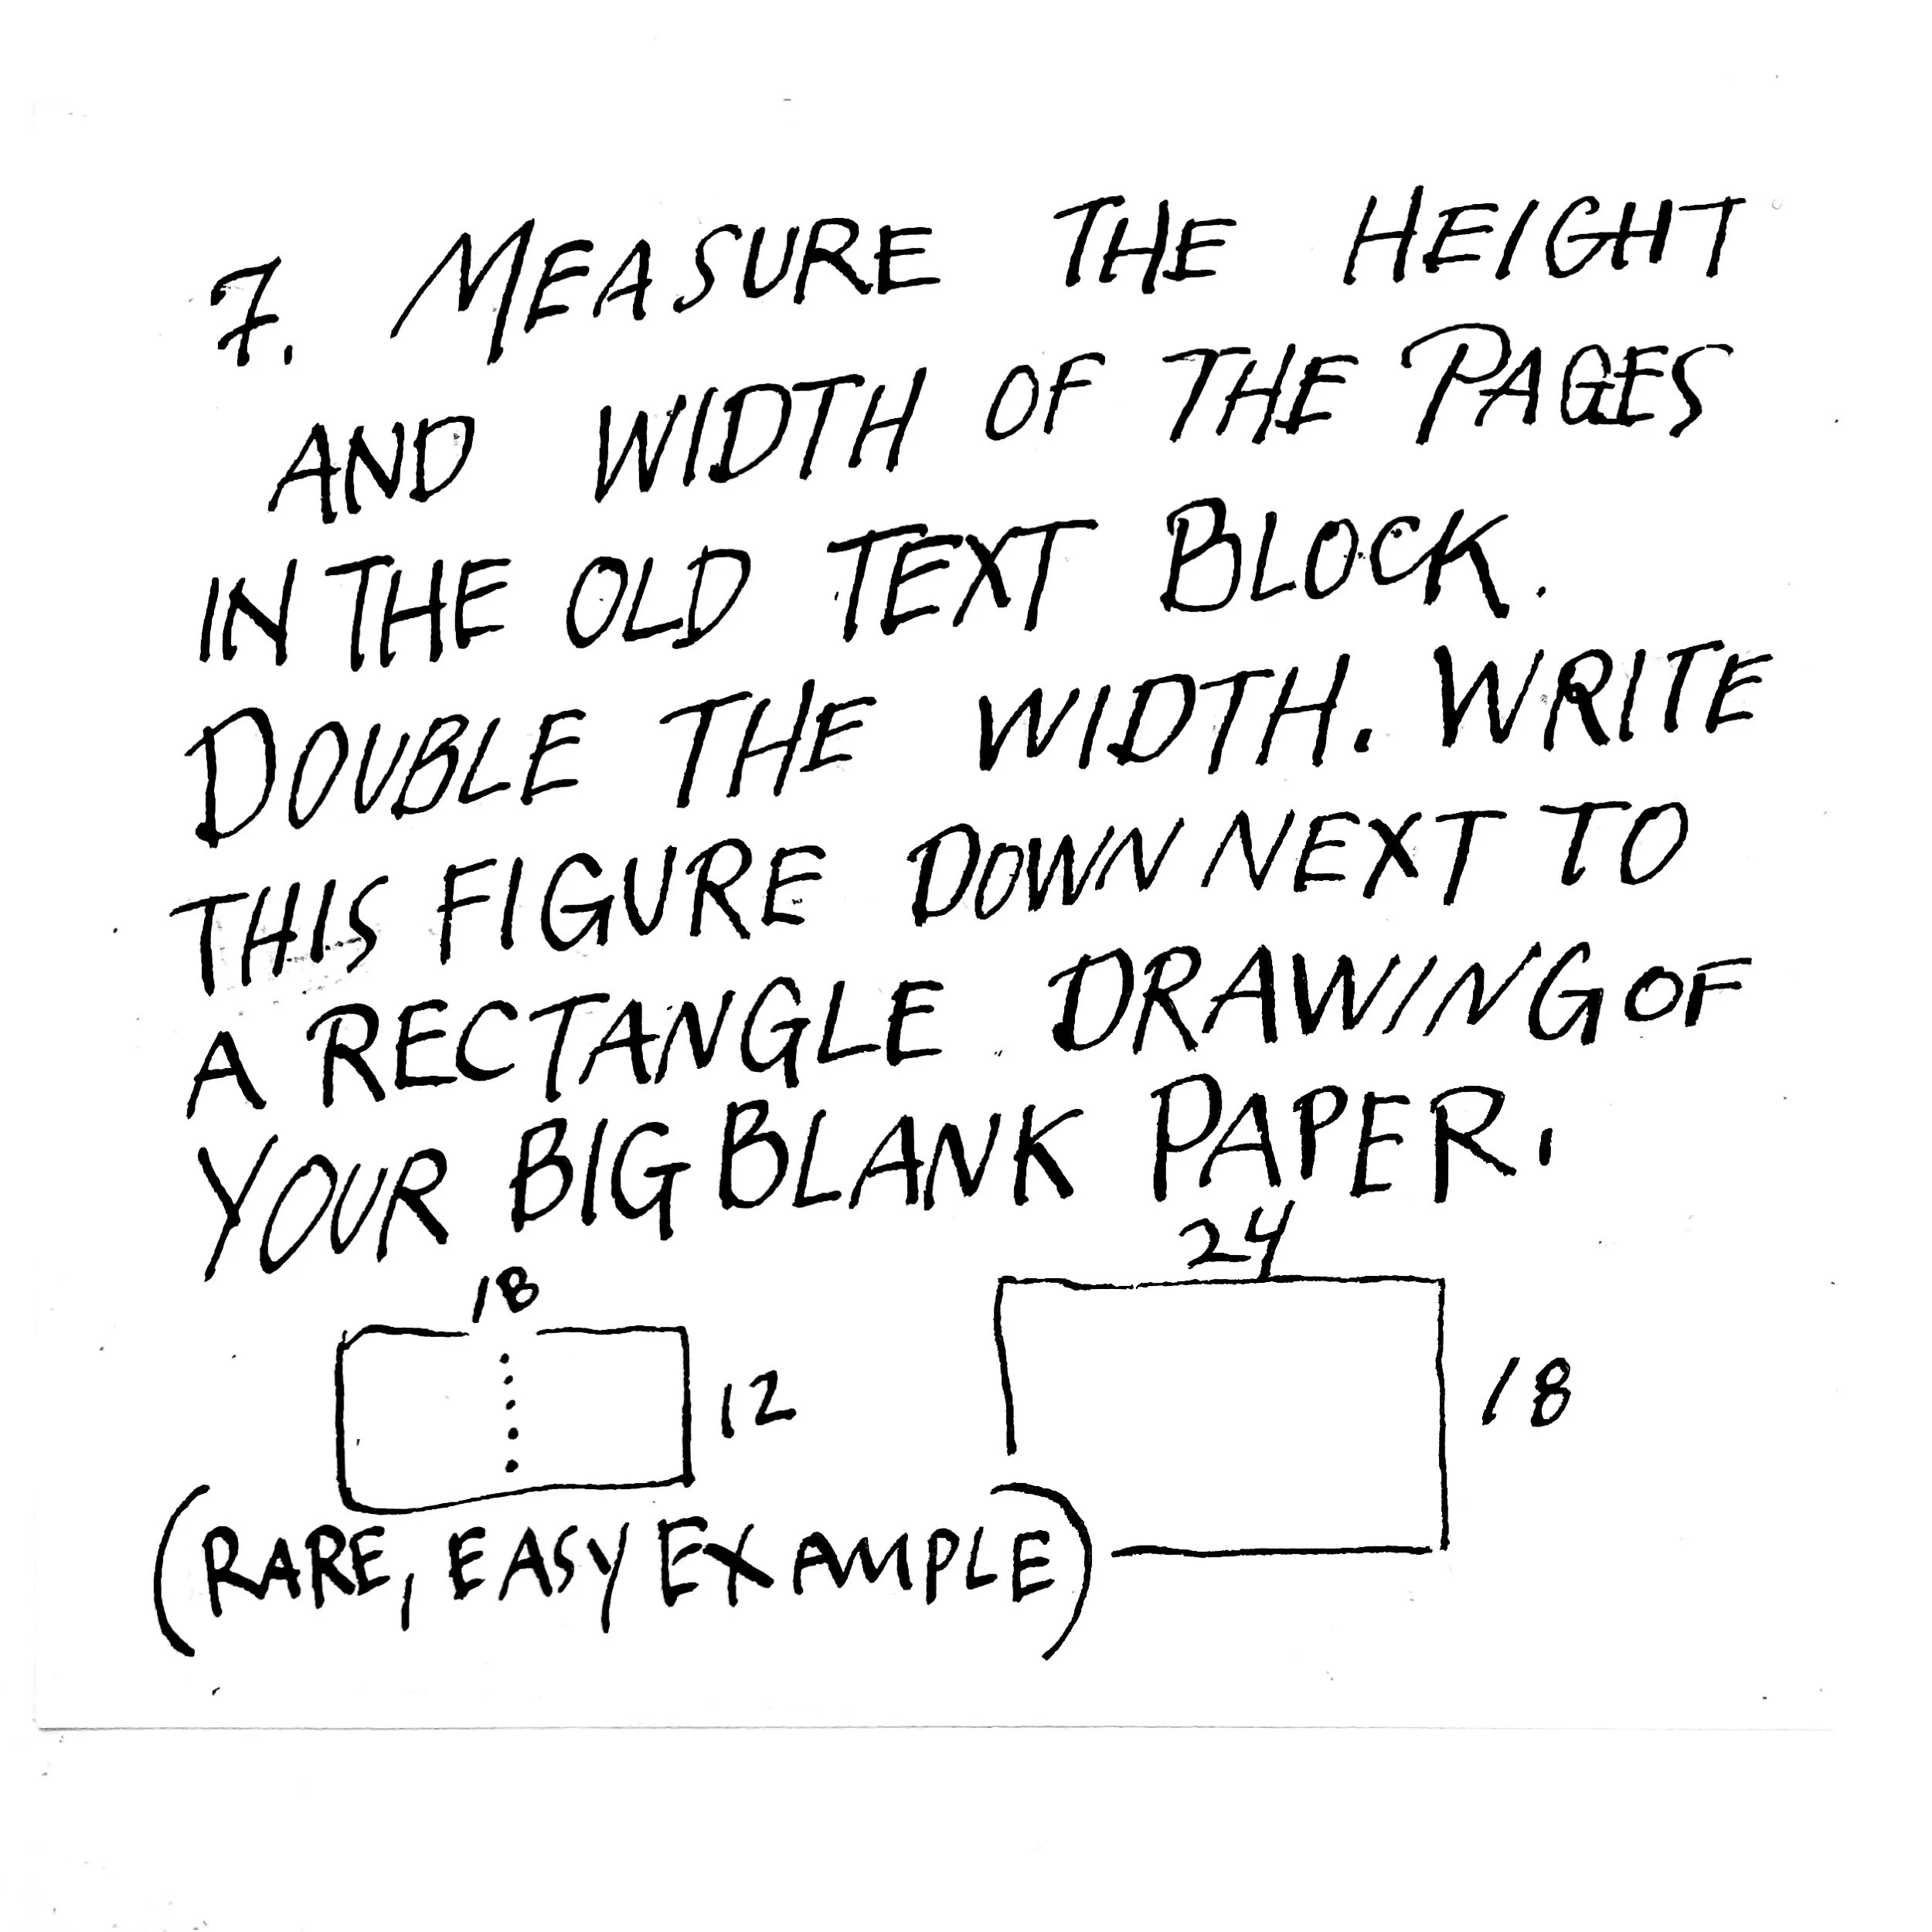 7. MEASURE THE HEIGHT
AND WIDTH OF THE PAGES
IN THE OLD TEXT BLOCK.
DOUBLE THE WIDTH. WRITE
THIS FIGURE DOWN NEXT TO
A RECTANGLE DRAWING OF
YOUR BIG BLANK PAPER.
24
18
12
18
(RARE, EASY EXAMPLE)